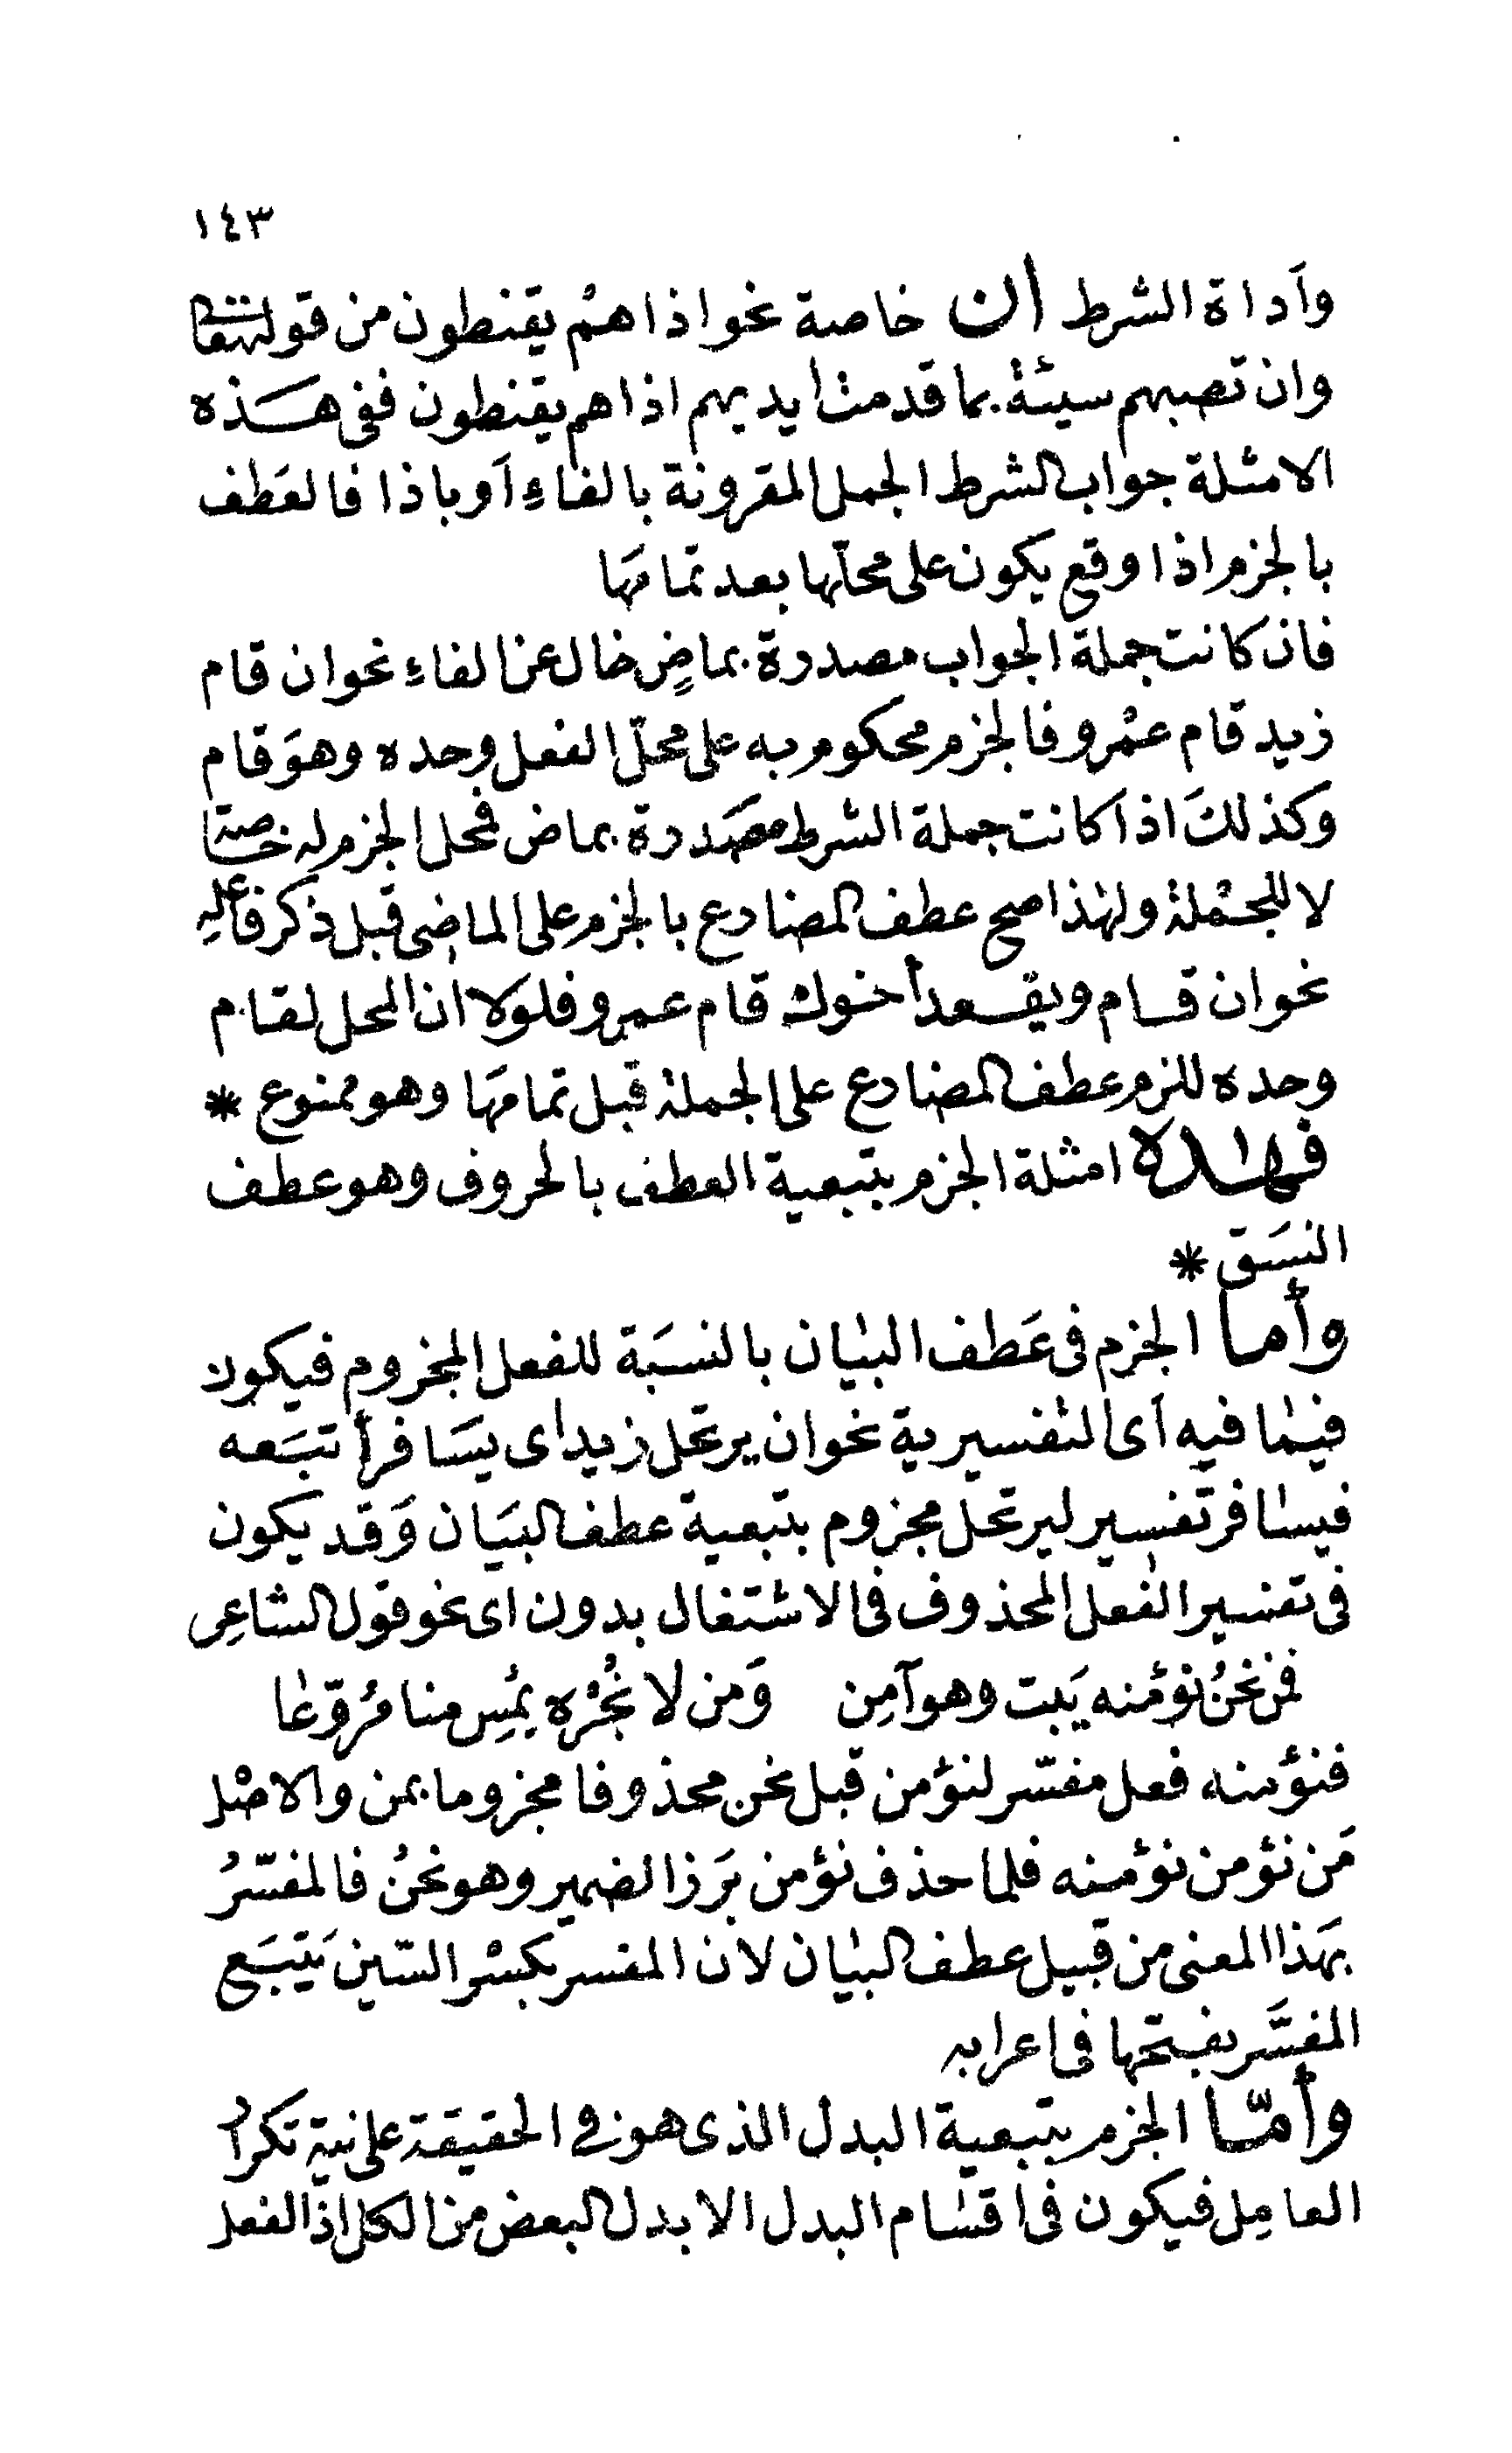 ١٤٣
وأداة الشرط إن خاصة نحو اذا همْ يقنطون من قوله تعالى
وان تصبهم سيئة بما قدمت أيديهم اذا هم يقنطون ففى هَذه
الامثلة جواب الشرط الجمل المقرونة بالفاءِ أو باذا فالعَطف
بالجزم اذا وقع يكون على محلّها بعد تمامَها
فان كانت جملة الجواب مصدرة بماضٍ خال عن الفاءِ نحو ان قام
زيد قام عمْرو فالجزم محكوم به على محلّ الفعل وحده وهوَ قام
وكذلكَ اذا كانت جملة الشرط مصَدرة بماض فمحل الجزم له خاصة
لا للجمْلة ولهٰذا صح عطف المضارع بالجزم على الماضى قبل ذكر فاعلهِ
نحو ان قام ويقعد أخوك قام عمرو فلولا ان المحل لقام
وحده للزم عطف المضارع على الجملة قبل تمامَها وهو ممنوع *
فهٰذه امثلة الجزم بتبعية العطف بالحروف وهو عطف
النسَق *
وأما الجزم فى عَطف البيٰان بالنسَبة للفعل المجزوم فيكون
فيمٰا فيه أى التفسيرية نحو ان يرتحل زيد اى يسَافر أتبَعه
فيسٰافر تفسير ليرتحل مجزوم بتبعية عطف البيَان وَقد يكون
فى تفسير الفعل المحذوف فى الاشتغال بدون اى نحو قول الشاعِر
فمن نحنُ نؤمنه يَبت وهو آمِن وَمن لا نُجْره يُمسِ منا مُروّعٰا
فنؤمنه فعل مفسّر لنؤمن قبل نحن محذوفا مجزوما بمن والاصْل
مَن نؤمن نؤمنه فلما حذف نؤمن بَرز الضمير وهو نحنُ فالمفسّرُ
بهَذا المعنى من قبيل عطف البيٰان لأن المفسر بكسْر السّين يَتبَع
المفسَّر بفتحها فى اعرابه
وأمّا الجزم بتبعية البدل الذى هو في الحقيقة على نية تكرار
العامِل فيكون فى اقسٰام البدل الا بدل البعض من الكل اذ الفعل